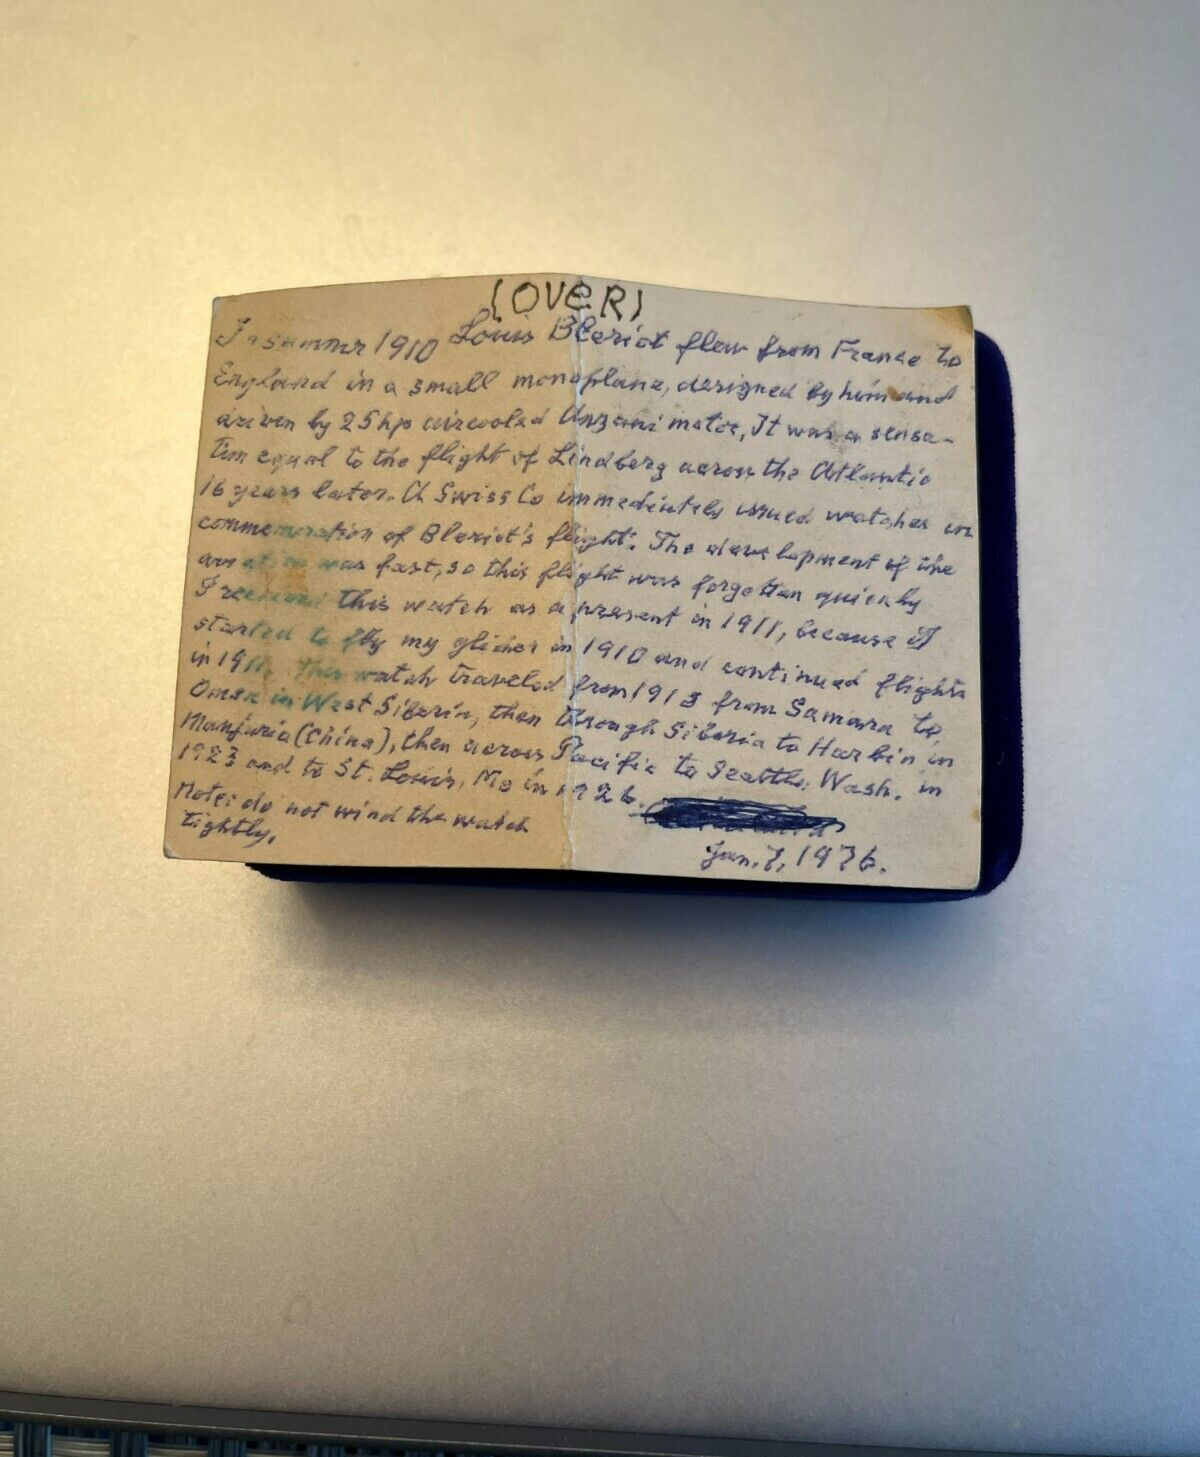 (OVER)
In summr 1910 Louis Bleriot flew from France to
England in a small monoplane, designed by him and
driven by 25hp aircooled Anzani motor, It was a sensa-
tion equal to the flight of Lindberg across the Atlantic
16 years later. A Swiss Co immediately issued watches in
commemoration of Bleriot's flight. The development of the
aviation was fast, so this flight was forgotten quickly
I received this watch as a present in 1911, because I
started to fly my glider in 1910 and continued flights
in 1911. This watch traveled from 1913 from Samara to
Omsk in West Siberia, then through Siberia to Harbin in
Manjuria (China), then across Pacific to Seattle, Wash. in
1923 and to St. Louis, Mo in 1926.
Note: do not wind the watch
tightly.
Jan. 7, 1976.